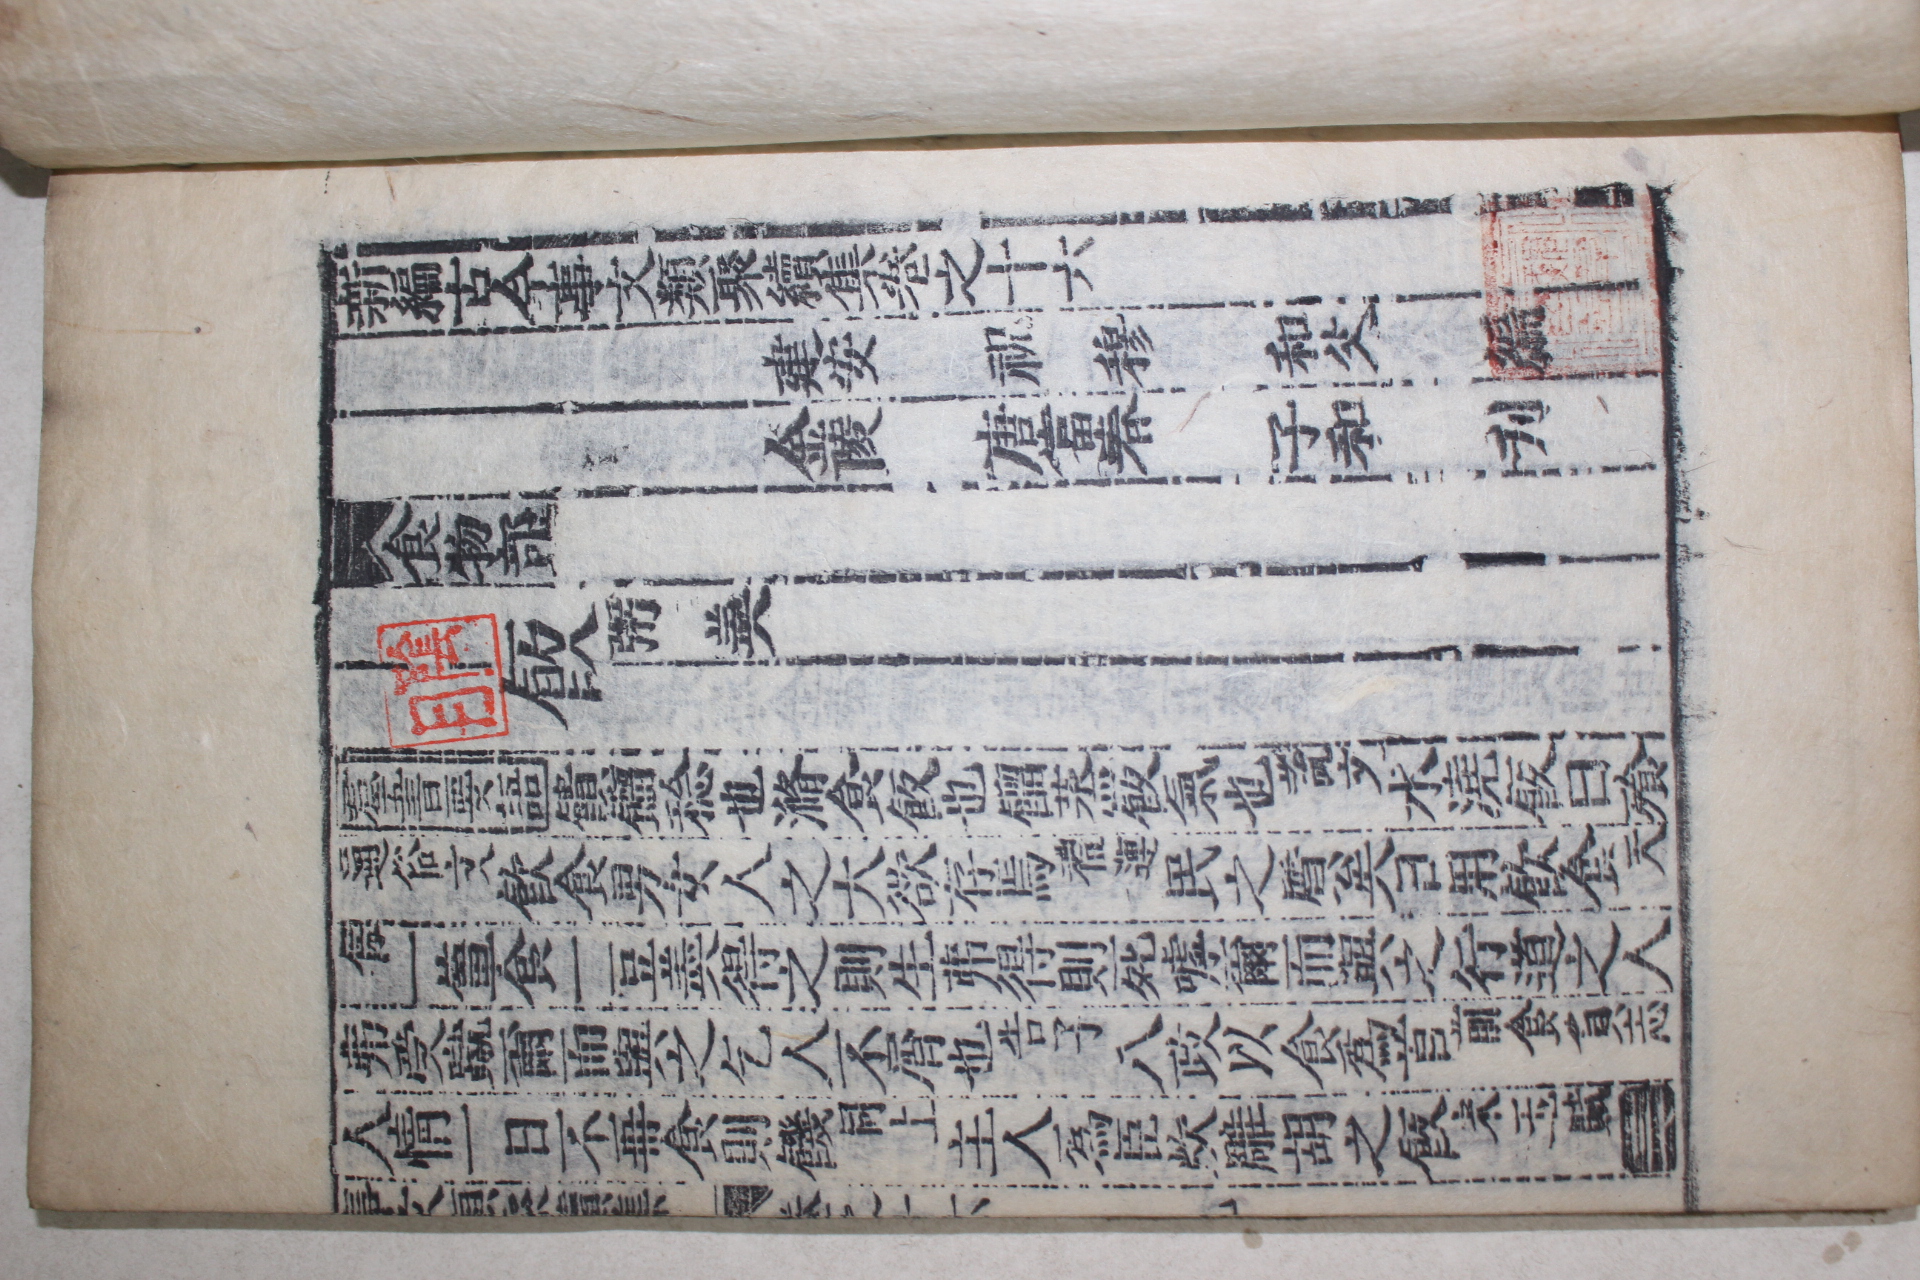 新編古今事文類聚續集卷之十六
建安 祝 穆 和父 編
金陵 唐富春 子和 刊
食物部
飯 粥 羹
羣書要語 饙餾稔也滫食飯也餾蒸飯氣也說文水澆飯曰飱
通俗文飲食男女人之大欲存焉禮運民之質矣日用飲食天
保一簞食一豆羹得之則生弗得則死嘑爾而與之行道之人
弗受蹴爾而與之乞人不屑也告子八政以食爲首前食貨志
人情一日不再食則饑同上主人爲臣炊雕胡之飯宋玉賦
事文類聚續集 卷之十六 九